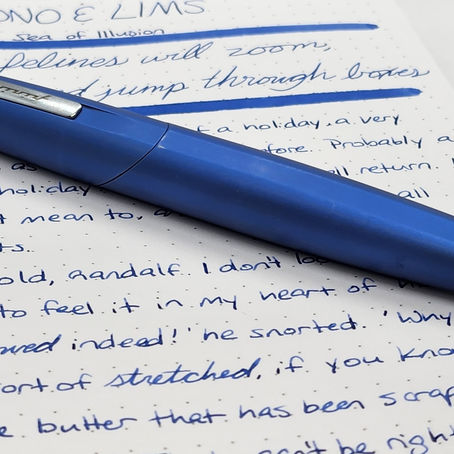 ONO & LIMS
Sea of Illusion
felines will zoom,
d jump through boxes
f a holiday, a very
fore. Probably a
all return. I
holiday all
t mean to, a
ts.
old, Gandalf. I don't lo
to feel it in my heart of
wed indeed!' he snorted. 'Why
ort of stretched, if you kno
e butter that has been scrap
can't be right